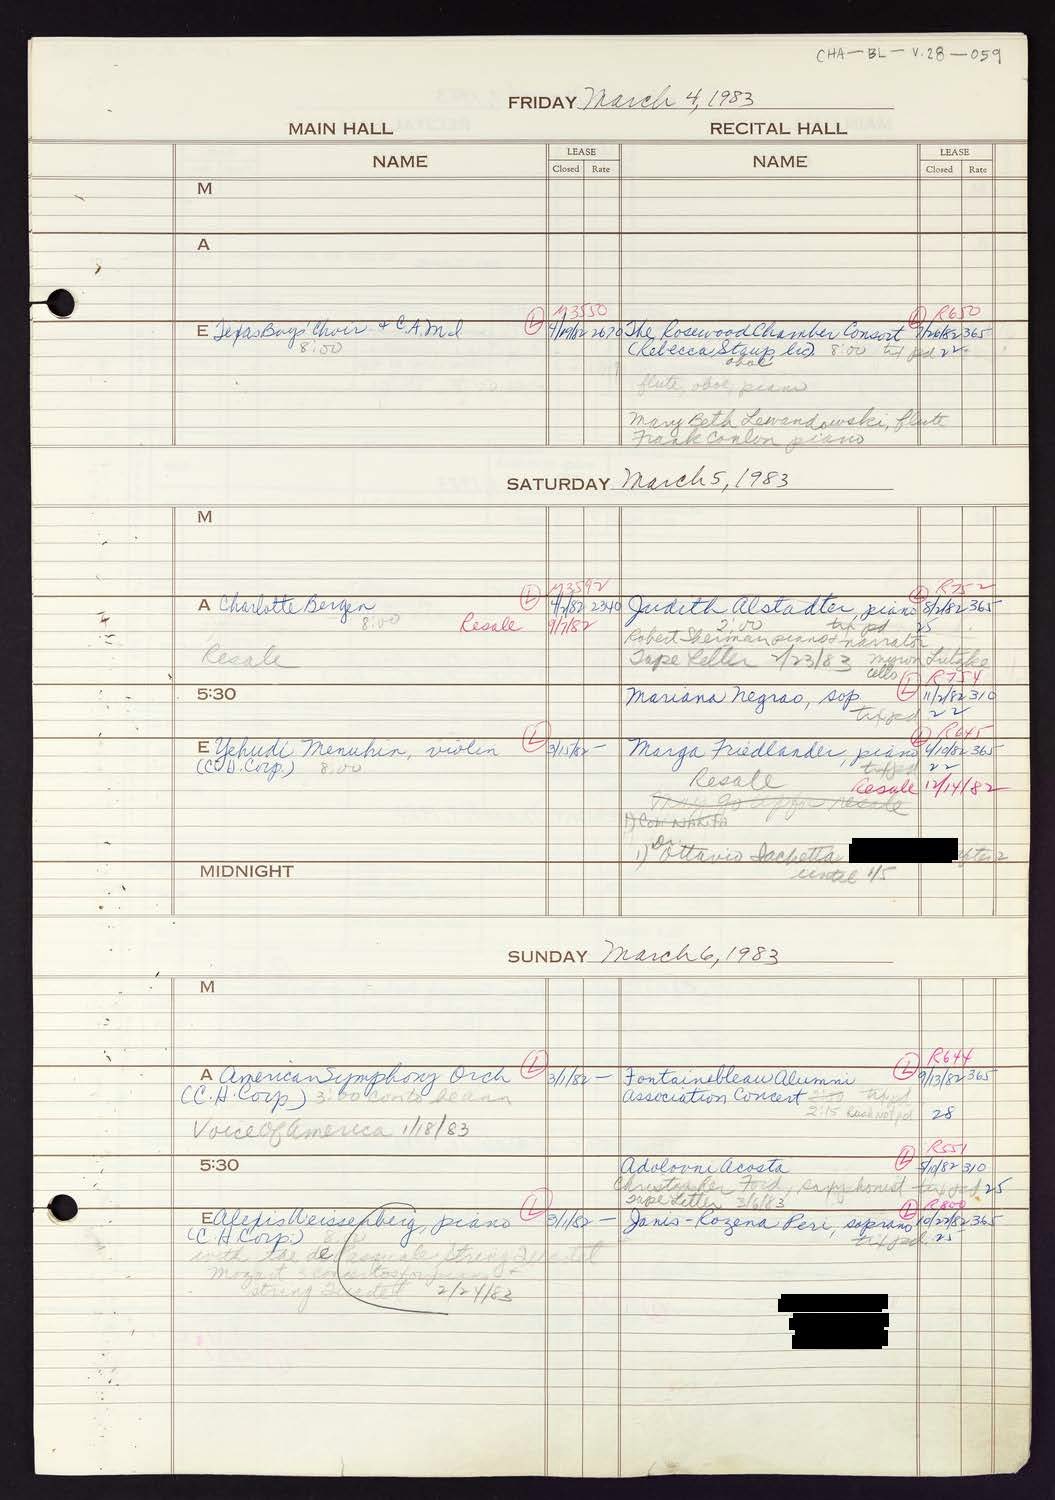 CHA-BL-V.28-059
FRIDAY March 4, 1983
MAIN HALL RECITAL HALL
NAME LEASE NAME LEASE
Closed Rate Closed Rate
M
A
M3550 R650
E Texas Boys Choir + C.A.M.I (L) 4/19/82 2670 The Rosewood Chamber Consort (L) 7/26/82 365
8:00 (Rebecca Stoup lic) 8:00 tix pd 22
oboe
flute, oboe, piano
Mary Beth Lewandowski, flute
Frank Conlon piano
SATURDAY March 5, 1983
M
M3592 R752
A Charlotte Bergen (L) 4/2/82 2340 Judith Alstadter, piano (L) 8/2/82 365
8:00 Resale 9/7/82 2:00 tix pd 25
Robert Sherman piano + narrator
Resale Tape Letter 2/23/83 Myron Lutzke
cello (L) R754
5:30 Mariana Negrao, sop 11/2/82 310
tix pd 22
(L) R645
E Yehudi Menuhin, violin (L) 3/15/82 - Marga Friedlander, piano 4/10/82 365
(C.H. Corp.) 8:00 tix pd 22
Resale Resale 12/14/82
May go up for resale
1)
1) Dr. Ottavio after 2
MIDNIGHT until 1/5
SUNDAY March 6, 1983
M
R644
A American Symphony Orch (L) 3/1/82 - Fontainebleau Alumni (L) 9/13/82 365
(C.H. Corp) 3:00 Association Concert 2:00 tix pd
2:15 not pd 28
Voice Of America 1/18/83
R551
5:30 Adolovni Acosta (L) 5/10/82 310
Ford, tix pd 25
Tape Letter 3/6/83 (L) R800
E Alexis Weissenberg, piano (L) 3/1/82 - Janis-Rozena Peri, soprano 10/22/82 365
(C.H. Corp.) 8:00 tix pd. 25
with the de Pasquale String Quartet
Mozart 3 concertos for piano +
String Quartet 2/24/83